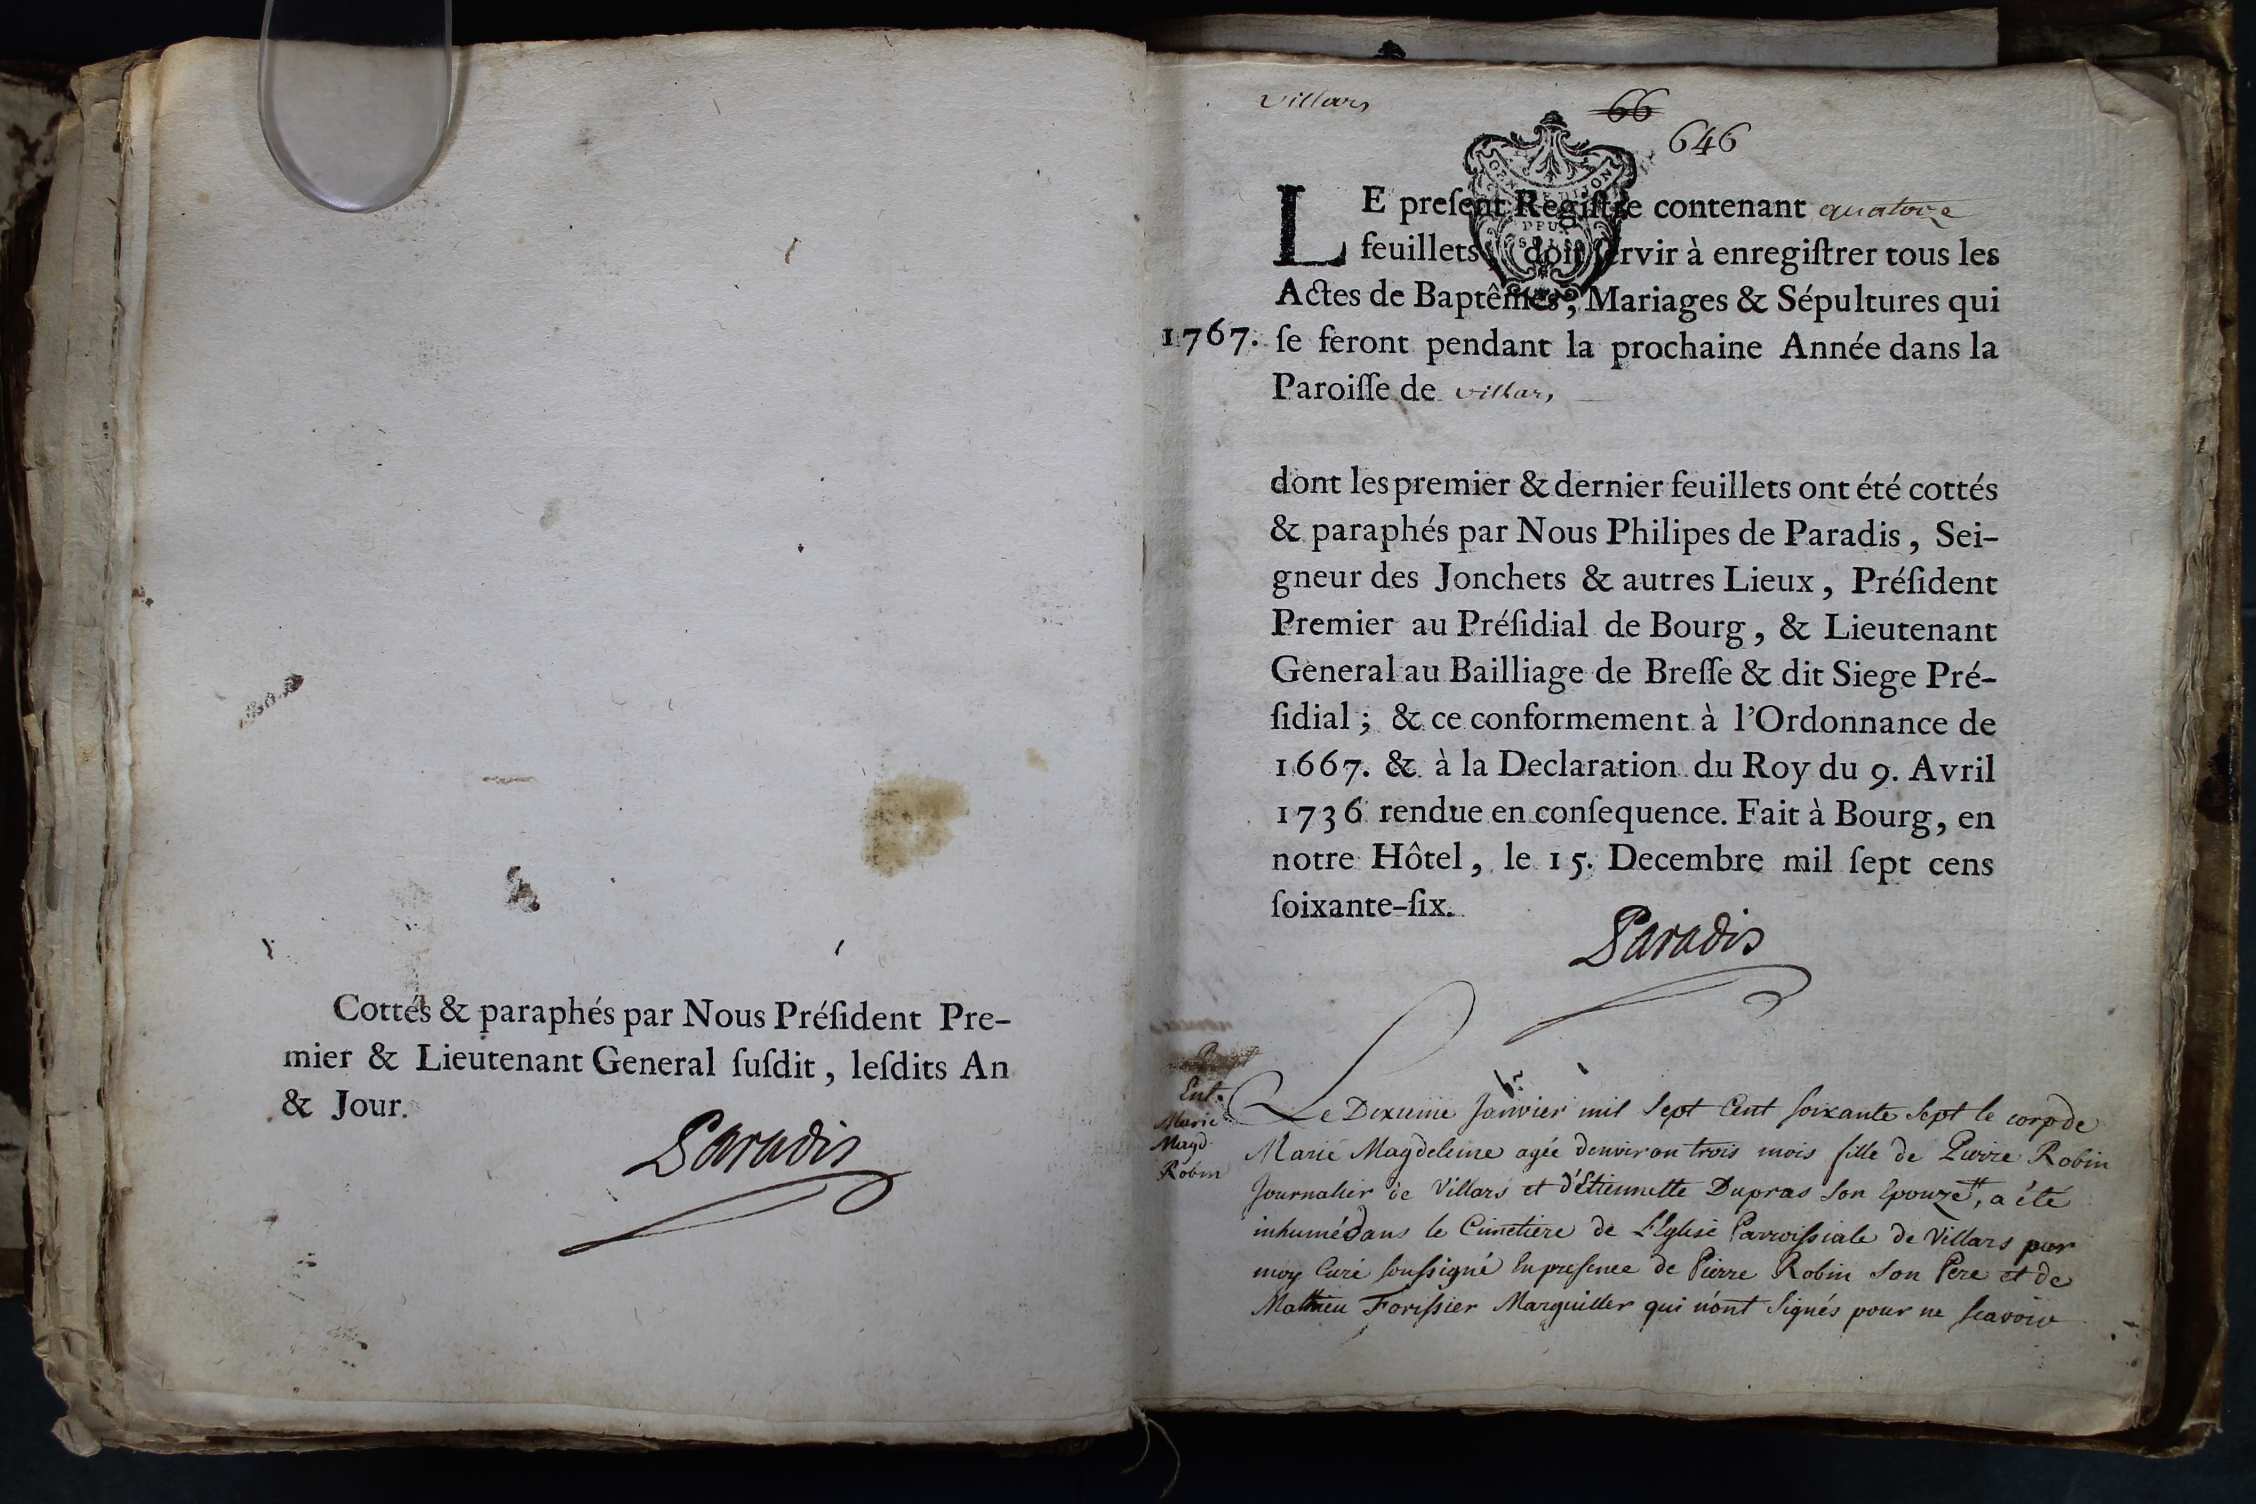 Cottés & paraphés par Nous Préſident Pre-
mier & Lieutenant General ſuſdit, leſdits An
& Jour.
Paradis
Villars
66
646
LE preſent Regiſtre contenant quatorze
feuillets, doit ſervir à enregiſtrer tous les
Actes de Baptêmes, Mariages & Sépultures qui
1767. ſe feront pendant la prochaine Année dans la
Paroiſſe de villars
dont les premier & dernier feuillets ont été cottés
& paraphés par Nous Philipes de Paradis, Sei-
gneur des Jonchets & autres Lieux, Préſident
Premier au Préſidial de Bourg, & Lieutenant
General au Bailliage de Breſſe & dit Siege Pré-
ſidial; & ce conformement à l'Ordonnance de
1667. & à la Declaration du Roy du 9. Avril
1736 rendue en conſequence. Fait à Bourg, en
notre Hôtel, le 15. Decembre mil ſept cens
ſoixante-ſix.
Paradis
Ent.
Marie
Magd
Robin
Le Dixieme Janvier mil Sept Cent soixante Sept le corp de
Marie Magdeleine agée denviron trois mois fille de Pierre Robin
Journalier de Villars et d'Étiennette Dupras son Epouze, a été
inhumé dans le Cimetiere de L'Eglise Parroissiale de Villars par
moy Curé soussigné En presence de Pierre Robin son Pere et de
Mathieu Forissier Marguiller qui n'ont signés pour ne scavoir